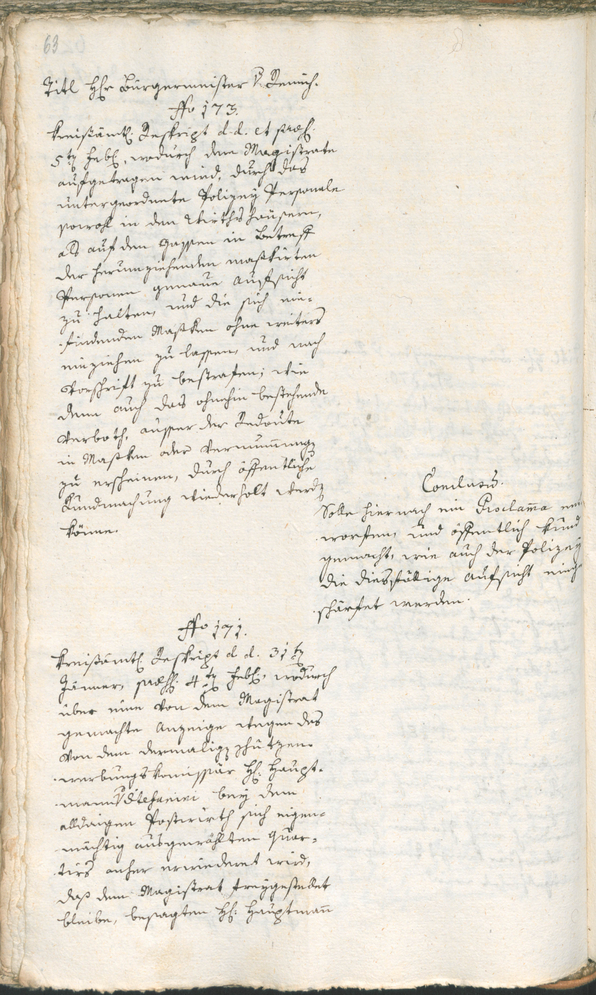 63
Titl Hℏr Bürgermeister v. Remich.
Nro 173.
Kreisämtl. Reskript d. d. et præs.
5t Febl., wodurch dem Magistrate
aufgetragen wird, durch das
untergeordnete Polizey Personale
sowohl in den Wirthshäusern,
als auf den Gassen in Betreff
der herumziehenden maskirten
Personen genaue Aufsicht
zu halten, und die sich ein-
findenden Masken ohne weiters
einziehen zu lassen, und nach
Vorschrift zu bestrafen; wie
denn auch das ohnehin bestehende
Verboth, ausser der Redoute
in Masken oder Vermummung
zu erscheinen, durch öffentliche
Kundmachung wiederholt werden
könne.
Conclusum.
Solle hiernach ein Proclama ent-
worfen, und öffentlich kund
gemacht, wie auch der Polizey
die diesfällige Aufsicht einge-
schärfet werden.
Nro 171.
Kreisämtl. Reskript d. d. 31t
Jänner, præs. 4t Febl., wodurch
über eine von dem Magistrat
gemachte Anzeige wegen des
von dem dermaligen Schützen-
werbungskomissär H. Haupt-
mann v. Stefanini bey dem
alldaigen Postwirth sich eigen-
mächtig ausgewählten Quar-
tirs anher erwiedert wird,
daß dem Magistrat freygestellet
bleibe, besagten H. Hauptmann